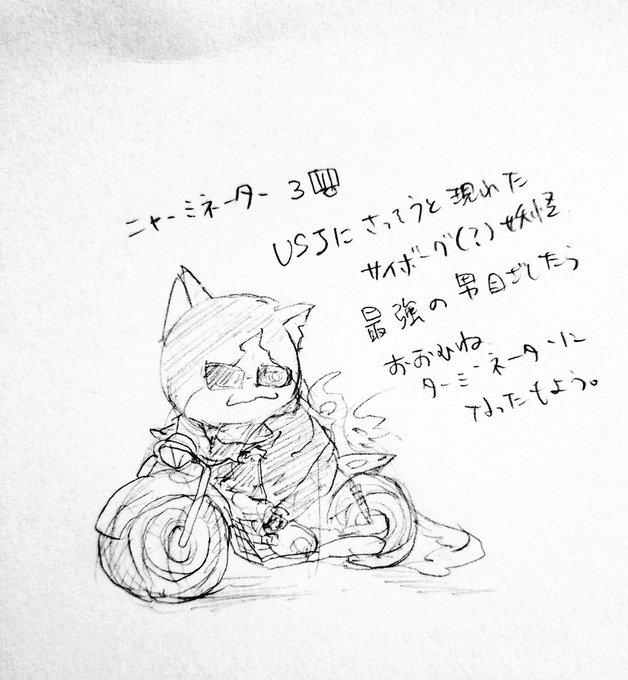 ニャーミネーター3
USJにさっそうと現れた
サイボーグ(?)妖怪
最強の男目ざしたら
おおむね
ターミネーターに
なったもよう。